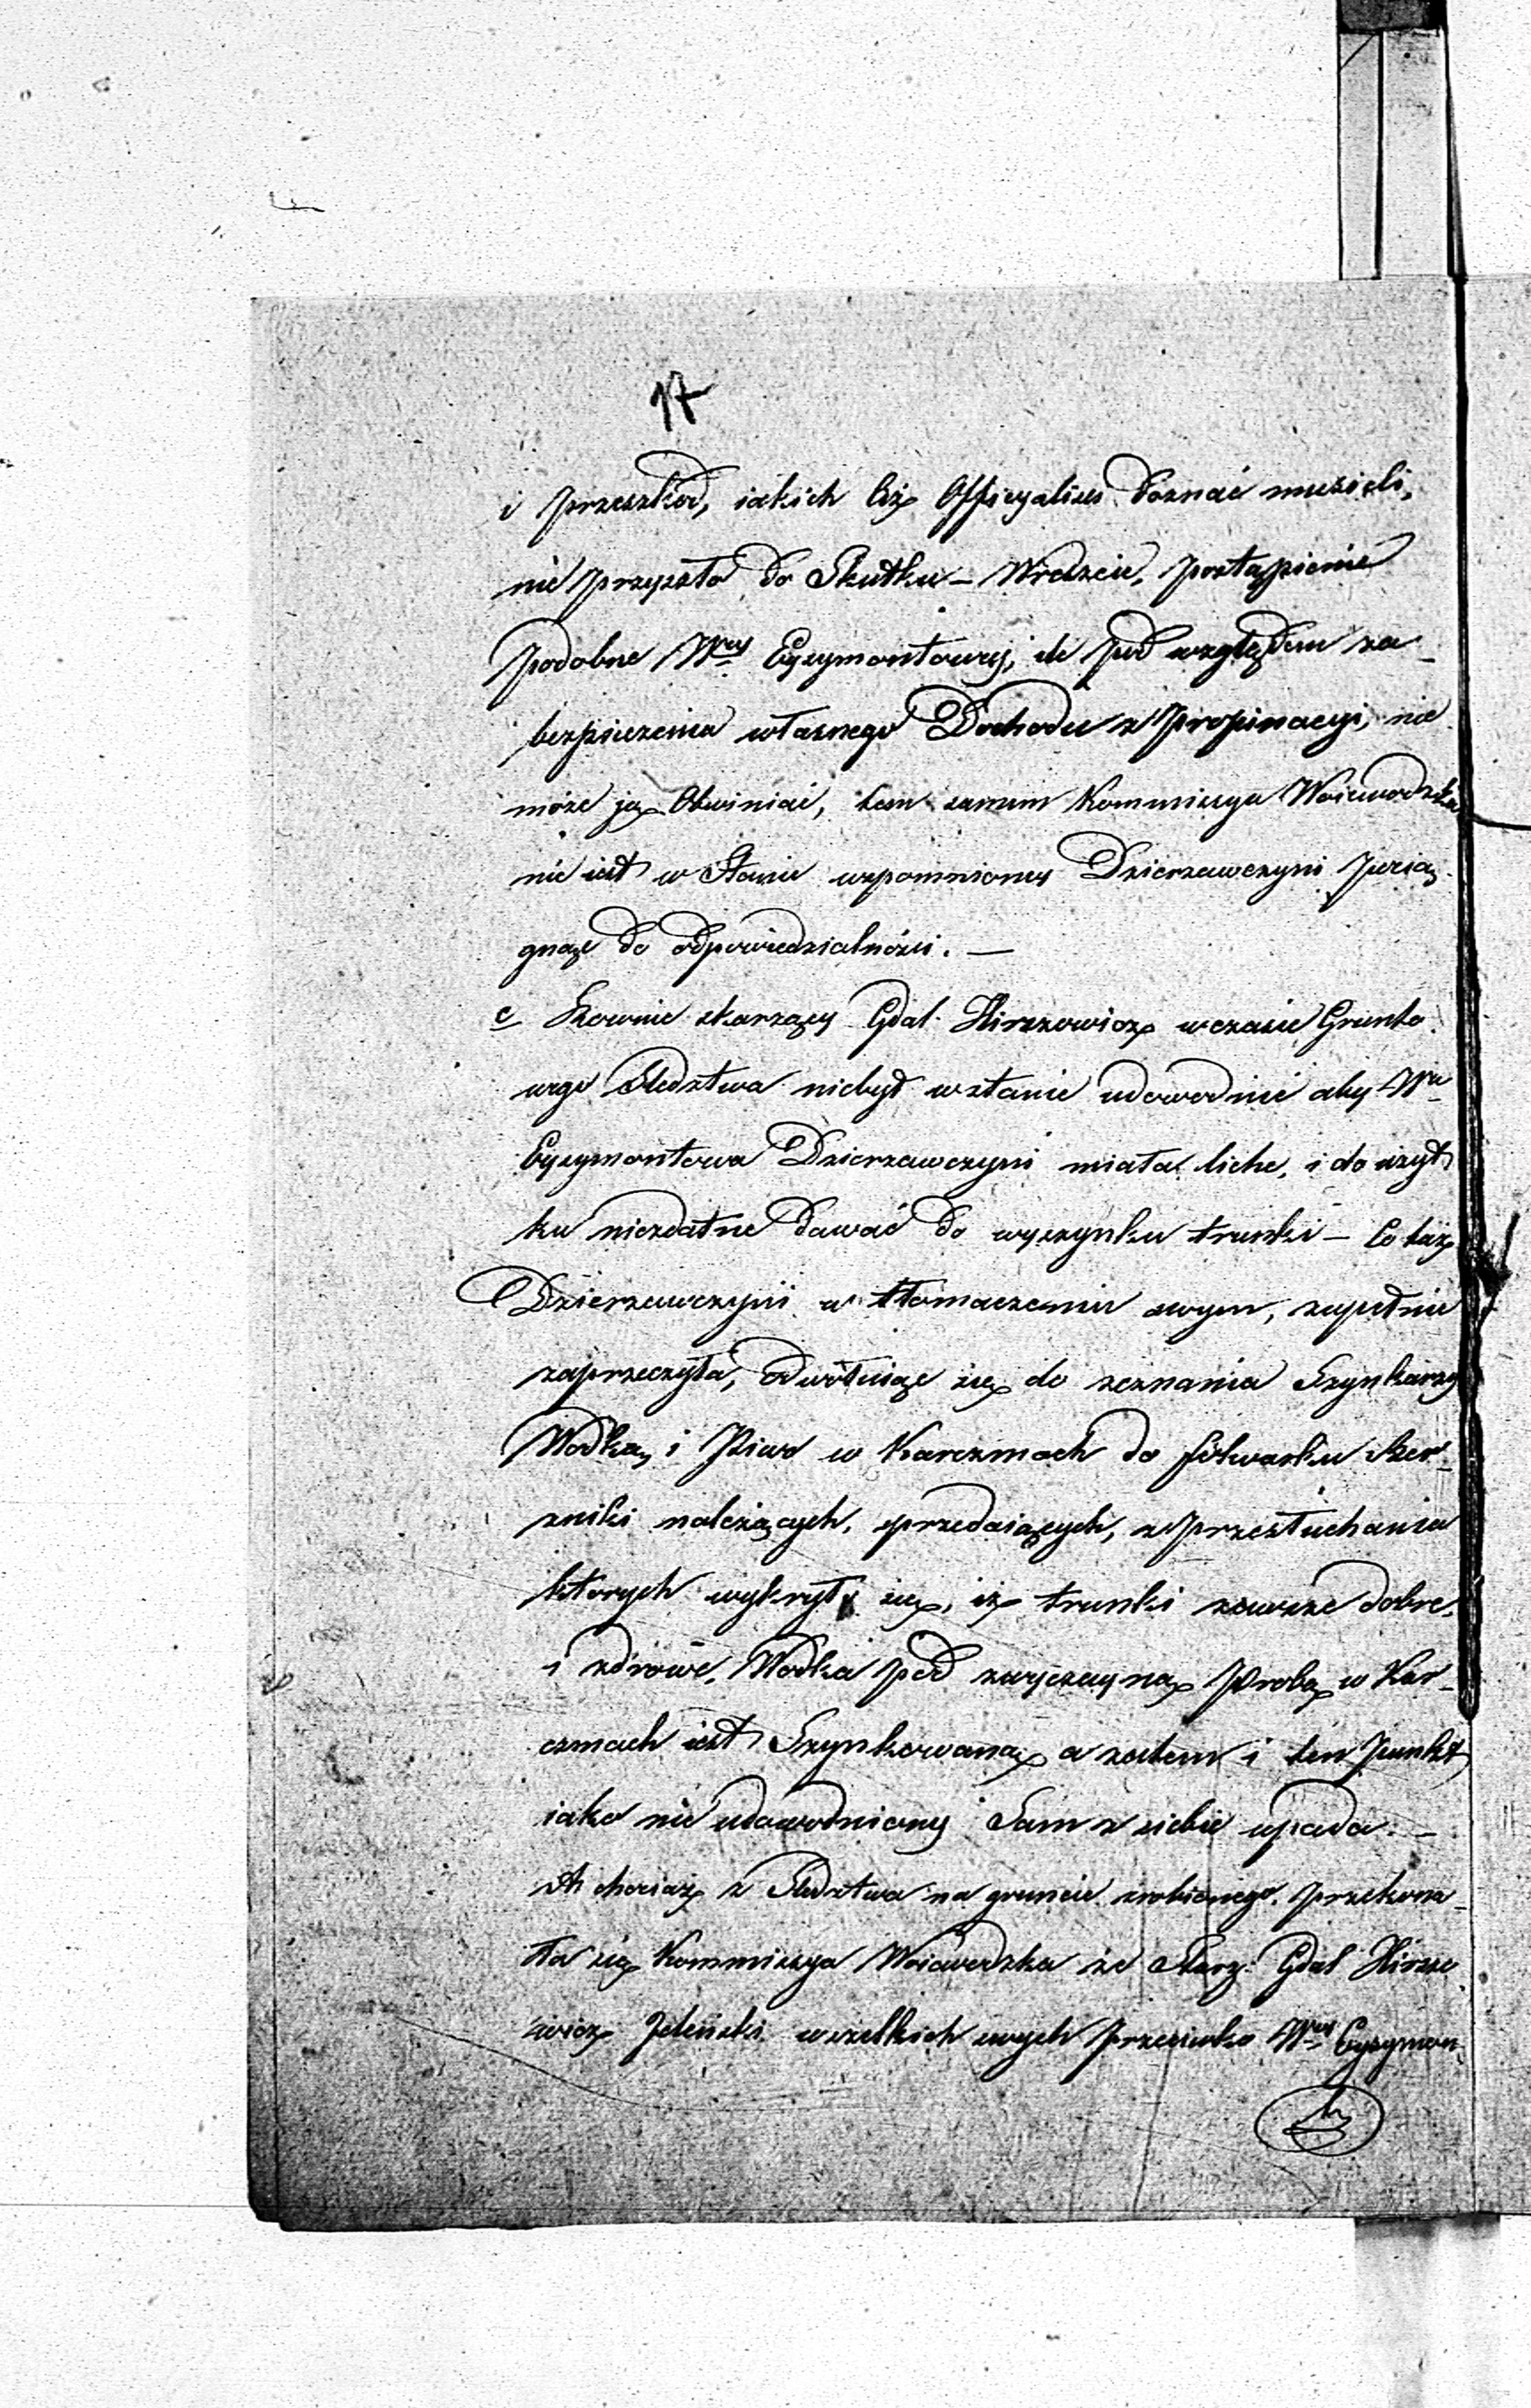 17
i przeszkód, iakich ciż Officyaliści doznać musieli,
nie przyszło do Skutku – Wreszcie, postąpienie
podobne Wney Eysymontowey, ile pod względem za-
bezpieczenia własnego Dochodu z Propinacyi, nie
może ją Obwiniać, tem samem Kommissya Woiewodzka
nie iest w Stanie wspomnioney Dzierzawczyni pocią-
gnąć do odpowiedzialności. —
c Rownie skarzący Gdal Hirszowicz w czasie Grunto-
wego Sledztwa niebył wstanie udowodnić aby Wa
Eysymontowa Dzierzawczyni miała liche, i do użyt
ku niezdatne dawać do wyszynku trunki – Co taż
Dzierzawczyni w tłomaczeniu swym, zupełnie
zaprzeczyła, Odwołuiąc się do zeznania Szynkarzy
Wodkę, i Piwo w Karczmach do folwarku Ber-
zniki należących, sprzedaiących, z przesłuchania
ktorych wykryło się, iż trunki zawsze dobre,
i zdrowe, Wodka pod zwyczayną Probą w Kar-
czmach iest Szynkowaną a zatem i ten Punkt
iako nie udowodniony Sam z siebie upada. —
A chociaż z Sledztwa na gruncie zrobionego, przekona-
ła się Kommissya Woiewodzka że Starz: Gdal Hirszo
wicz Jeleński wszelkich swych przeciwko Wney Eysymon